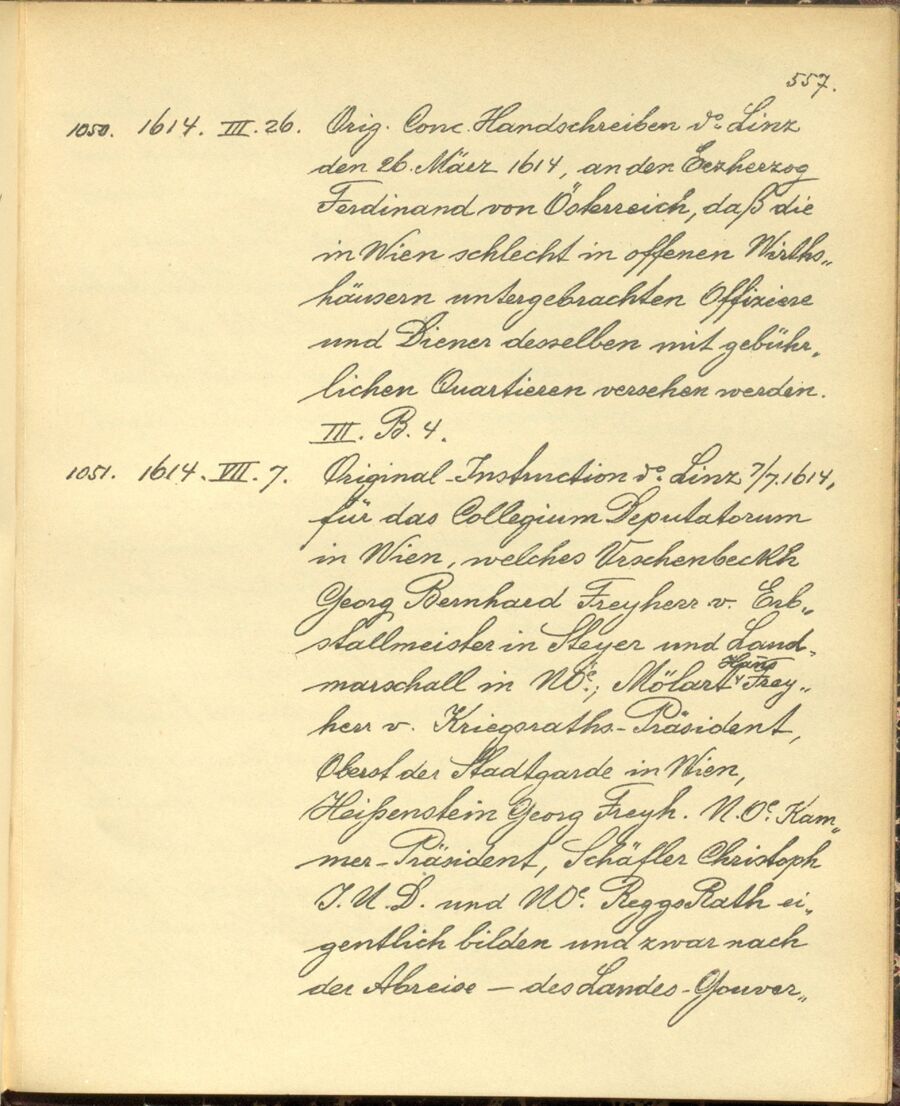 557.
1050. 1614. III. 26. Orig. Conc. Handschreiben do. Linz
den 26. März 1614, an den Erzherzog
Ferdinand von Österreich, daß die
in Wien schlecht in offenen Wirths„
häusern untergebrachten Offiziere
und Diener desselben mit gebühr„
lichen Quartieren versehen werden.
III. B. 4.
1051. 1614. VII. 7. Original-Instruction do. Linz 7/7. 1614,
für das Collegium Deputatorum
in Wien, welches Urschenbeckh
Georg Bernhard Freyherr v. Erb„
stallmeister in Steyer und Land„
marschall in NÖe., Mölart Hans Frey„
herr v. Kriegsraths-Präsident,
Oberst der Stadtgarde in Wien,
Heißenstein Georg Freyh. N.Oe. Kam„
mer-Präsident, Schäfler Christoph
I. U. D. und NOe. ReggsRath ei„
gentlich bilden und zwar nach
der Abreise – des Landes-Gouver„